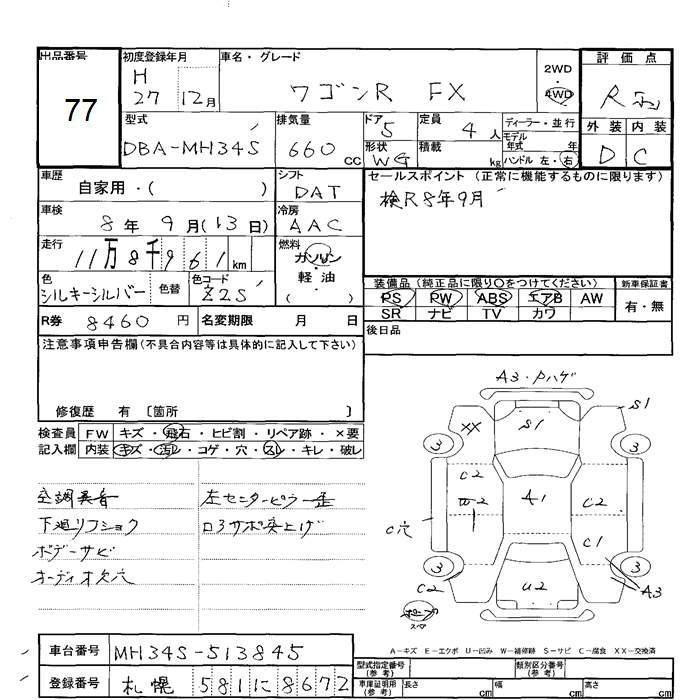 出品番号
77
初度登録年月
H
27 12月
車名・グレード
ワゴンR FX
2WD
・
4WD
評価点
R
外装 内装
D C
型式
DBA-MH34S
排気量
660 cc
ドア
5
形状
WG
定員
4 人
積載
kg
ディーラー・並行
モデル
年式 年
ハンドル 左・右
車歴
自家用・( )
シフト
DAT
セールスポイント (正常に機能するものに限ります)
検R8年9月
車検
8年 9月(13日)
冷房
AAC
走行
11万8千961km
燃料
ガソリン
・
軽・油
( )
色
シルキーシルバー
色替
色コード
Z2S
装備品(純正品に限り○をつけてください)
新車保証書
PS PW ABS エアB AW
SR ナビ TV カワ
有・無
R券 8460 円
名変期限 月 日
後日品
注意事項申告欄(不具合内容等は具体的に記入して下さい)
修復歴 有 〔箇所 〕
検査員
記入欄
FW キズ・飛石・ヒビ割・リペア跡・×要
内装 キズ・汚レ・コゲ・穴・スレ・キレ・破レ
空調異音
下廻リフショク
ボデーサビ
オーディオ欠穴
左センターピラー歪
ロアサポ突上げ
A3・Pハゲ
S1
S1
XX
3
3
C2
A1
C2
C穴
C1
3
3
C2
U2
A3
スペア
A-キズ E-エクボ U-凹み W-補修跡 S-サビ C-腐食 XX-交換済
車台番号 MH34S-513845
登録番号 札幌 581 に 8672
型式指定番号
(参考)
類別区分番号
(参考)
車庫証明用
(参考)
長さ cm 幅 cm 高さ cm